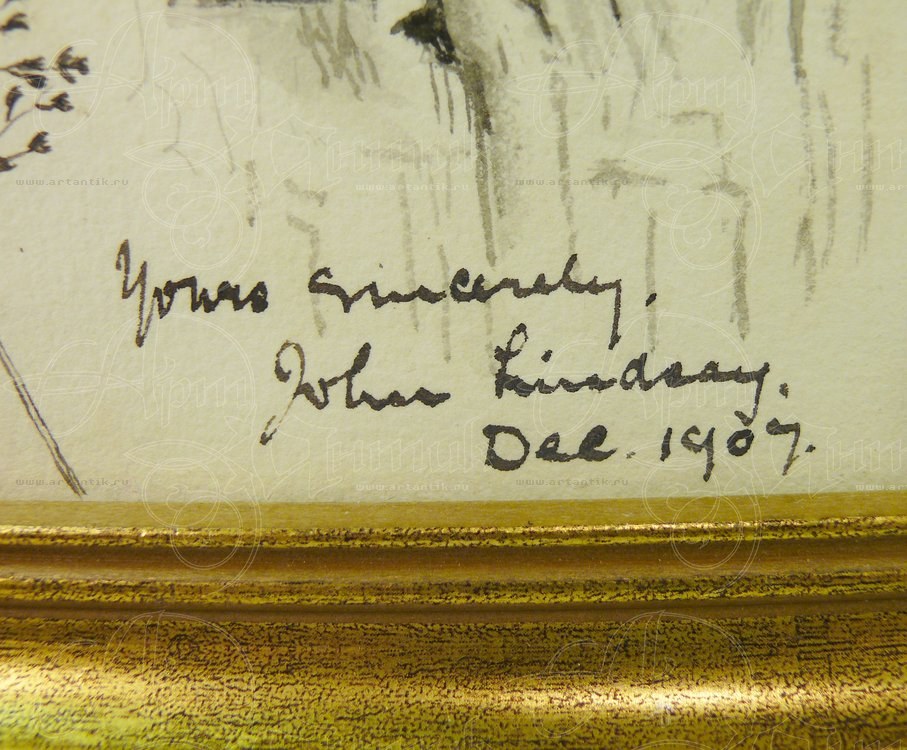 www.artantik.ru www.artantik.ru www.artantik.ru www.artantik.ru
Yours sincerely.
John Lindsay.
Dec. 1907.
www.artantik.ru www.artantik.ru www.artantik.ru www.artantik.ru